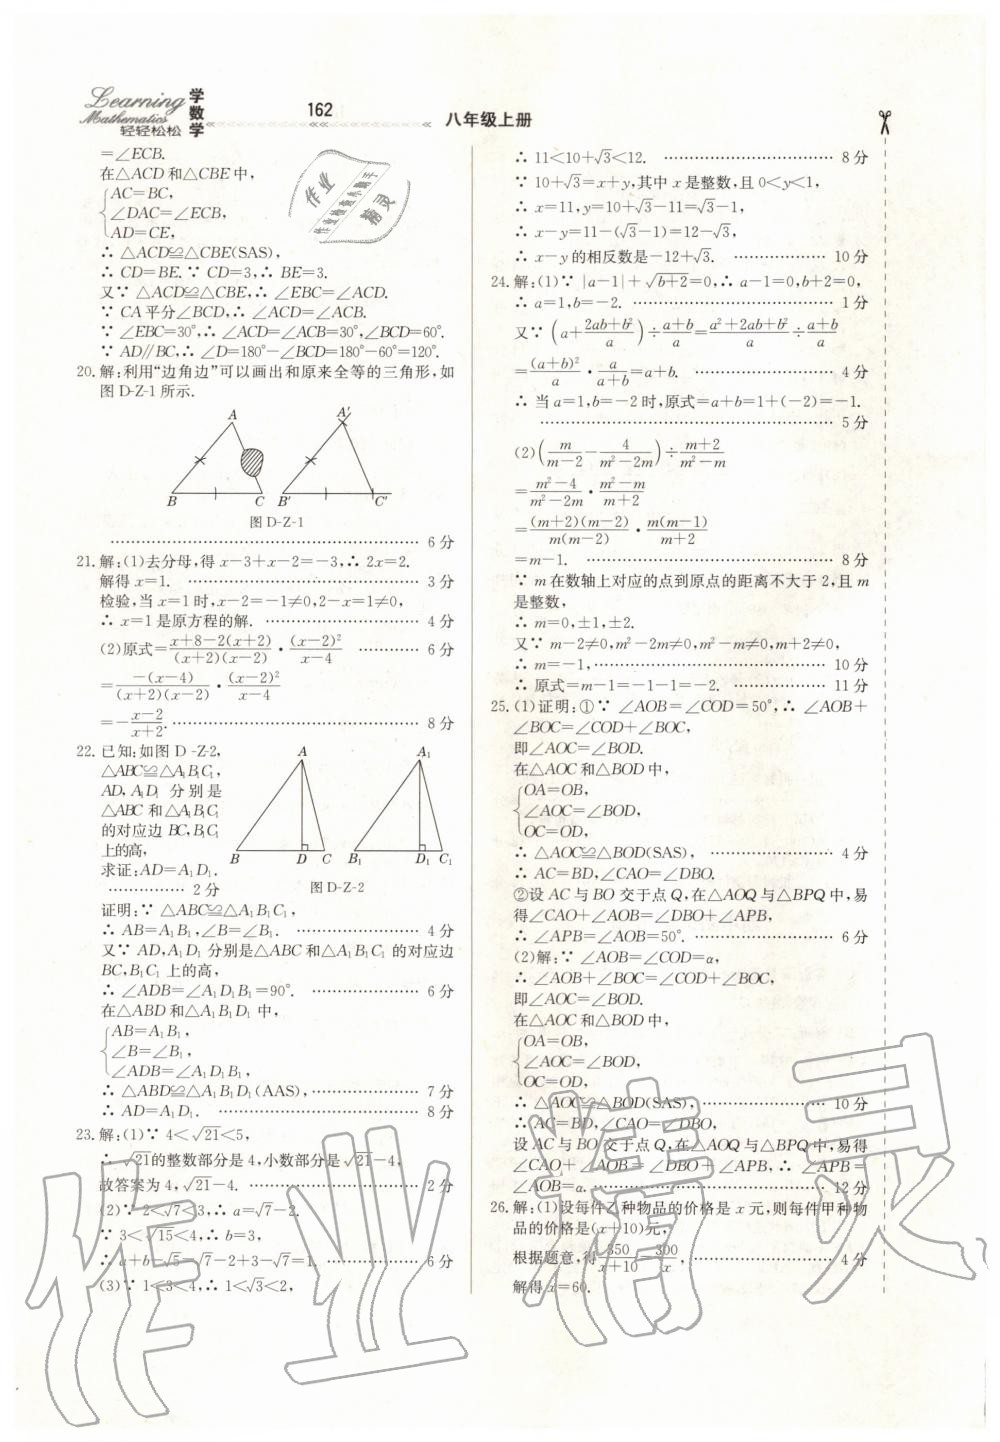 Learning
Mathematics
轻轻松松
学数学
162
八年级上册
=∠ECB.
在△ACD和△CBE中,
AC=BC,
∠DAC=∠ECB,
AD=CE,
∴ △ACD≌△CBE(SAS),
∴ CD=BE.∵ CD=3,∴ BE=3.
又∵ △ACD≌△CBE,∴ ∠EBC=∠ACD.
∵ CA平分∠BCD,∴ ∠ACD=∠ACB.
∵ ∠EBC=30°,∴ ∠ACD=∠ACB=30°,∠BCD=60°.
∵ AD∥BC,∴ ∠D=180°-∠BCD=180°-60°=120°.
20. 解:利用“边角边”可以画出和原来全等的三角形,如
图D-Z-1所示.
A A′
B C B′ C′
图 D-Z-1
6分
21. 解:(1)去分母,得 x-3+x-2=-3,∴ 2x=2.
解得 x=1. 3分
检验,当 x=1时,x-2=-1≠0,2-x=1≠0,
∴ x=1是原方程的解. 4分
(2)原式=(x+8-2(x+2))/((x+2)(x-2))·(x-2)²/(x-4) 6分
=(-(x-4))/((x+2)(x-2))·(x-2)²/(x-4)
=-(x-2)/(x+2). 8分
22. 已知:如图 D-Z-2,
△ABC≌△A₁B₁C₁,
AD,A₁D₁ 分别是
△ABC 和△A₁B₁C₁
的对应边 BC,B₁C₁
上的高,
求证:AD=A₁D₁.
2分
A A₁
B D C B₁ D₁ C₁
图 D-Z-2
证明:∵ △ABC≌△A₁B₁C₁,
∴ AB=A₁B₁,∠B=∠B₁. 4分
又∵ AD,A₁D₁ 分别是△ABC和△A₁B₁C₁ 的对应边
BC,B₁C₁ 上的高,
∴ ∠ADB=∠A₁D₁B₁=90°. 6分
在△ABD和△A₁B₁D₁ 中,
AB=A₁B₁,
∠B=∠B₁,
∠ADB=∠A₁D₁B₁,
∴ △ABD≌△A₁B₁D₁(AAS), 7分
∴ AD=A₁D₁. 8分
23. 解:(1)∵ 4<√21<5,
∴ √21的整数部分是 4,小数部分是√21-4,
故答案为 4,√21-4. 2分
(2)∵ 2<√7<3,∴ a=√7-2.
∵ 3<√15<4,∴ b=3,
∴ a+b-√5=√7-2+3-√7=1. 6分
(3)∵ 1<3<4,∴ 1<√3<2,
∴ 11<10+√3<12. 8分
∵ 10+√3=x+y,其中 x 是整数,且 0<y<1,
∴ x=11,y=10+√3-11=√3-1,
∴ x-y=11-(√3-1)=12-√3,
∴ x-y的相反数是-12+√3. 10分
24. 解:(1)∵ |a-1|+√(b+2)=0,∴ a-1=0,b+2=0,
∴ a=1,b=-2. 1分
又∵ (a+(2ab+b²)/a)÷(a+b)/a=(a²+2ab+b²)/a÷(a+b)/a
=(a+b)²/a·a/(a+b)=a+b. 4分
∴ 当a=1,b=-2时,原式=a+b=1+(-2)=-1.
5分
(2)(m/(m-2)-4/(m²-2m))÷(m+2)/(m²-m)
=(m²-4)/(m²-2m)·(m²-m)/(m+2)
=((m+2)(m-2))/(m(m-2))·(m(m-1))/(m+2)
=m-1. 8分
∵ m在数轴上对应的点到原点的距离不大于2,且m
是整数,
∴ m=0,±1,±2.
又∵ m-2≠0,m²-2m≠0,m²-m≠0,m+2≠0,
∴ m=-1, 10分
∴ 原式=m-1=-1-1=-2. 11分
25. (1)证明:①∵ ∠AOB=∠COD=50°,∴ ∠AOB+
∠BOC=∠COD+∠BOC,
即∠AOC=∠BOD.
在△AOC和△BOD中,
OA=OB,
∠AOC=∠BOD,
OC=OD,
∴ △AOC≌△BOD(SAS), 4分
∴ AC=BD,∠CAO=∠DBO.
②设 AC 与 BO 交于点 Q,在△AOQ与△BPQ中,易
得∠CAO+∠AOB=∠DBO+∠APB,
∴ ∠APB=∠AOB=50°. 6分
(2)解:∵ ∠AOB=∠COD=α,
∴ ∠AOB+∠BOC=∠COD+∠BOC,
即∠AOC=∠BOD.
在△AOC和△BOD中,
OA=OB,
∠AOC=∠BOD,
OC=OD,
∴ △AOC≌△BOD(SAS), 10分
∴ AC=BD,∠CAO=∠DBO,
设 AC与 BO 交于点 Q,在△AOQ与△BPQ中,易得
∠CAO+∠AOB=∠DBO+∠APB,∴ ∠APB=
∠AOB=α. 12分
26. 解:(1)设每件乙种物品的价格是 x 元,则每件甲种物
品的价格是(x+10)元,
根据题意,得350/(x+10)=300/x, 4分
解得 x=60.
作业
作业检查小助手
精灵
作业精灵